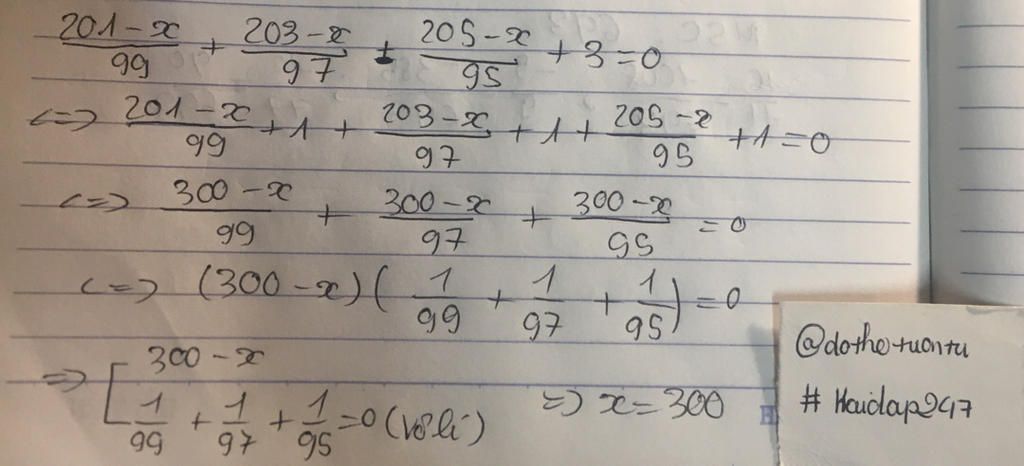 201-x/99 + 203-x/97 ± 205-x/95 + 3 = 0
<=> 201-x/99 + 1 + 203-x/97 + 1 + 205-x/95 + 1 = 0
<=> 300-x/99 + 300-x/97 + 300-x/95 = 0
<=> (300-x)(1/99 + 1/97 + 1/95) = 0
=> [ 300-x
1/99 + 1/97 + 1/95 = 0 (vô lí) => x = 300
@dothetuantu
# Hoidap247